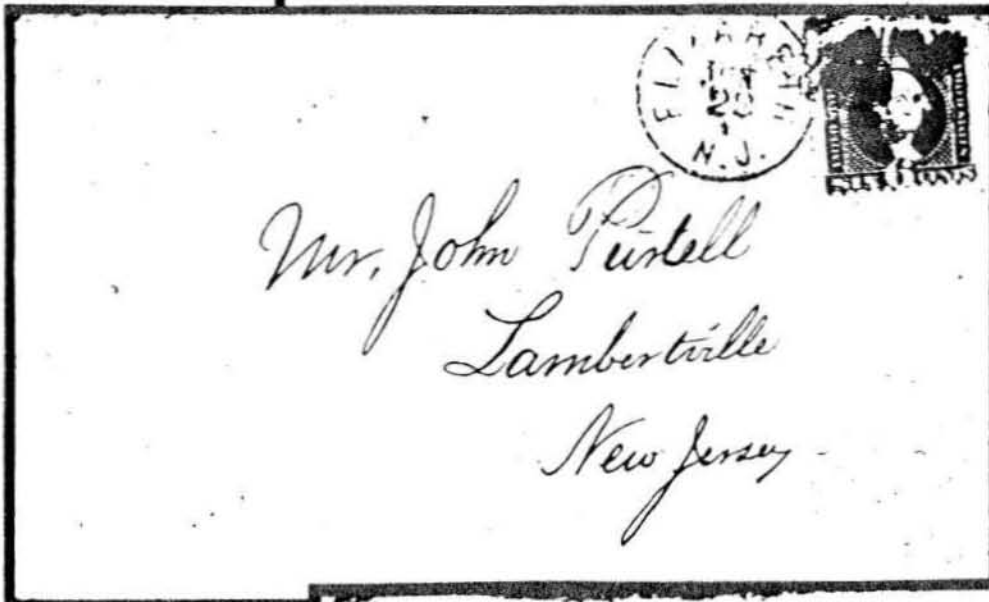 ELIZABETH
JUN
20
N.J.
Mr. John Pursell
Lambertville
New Jersey